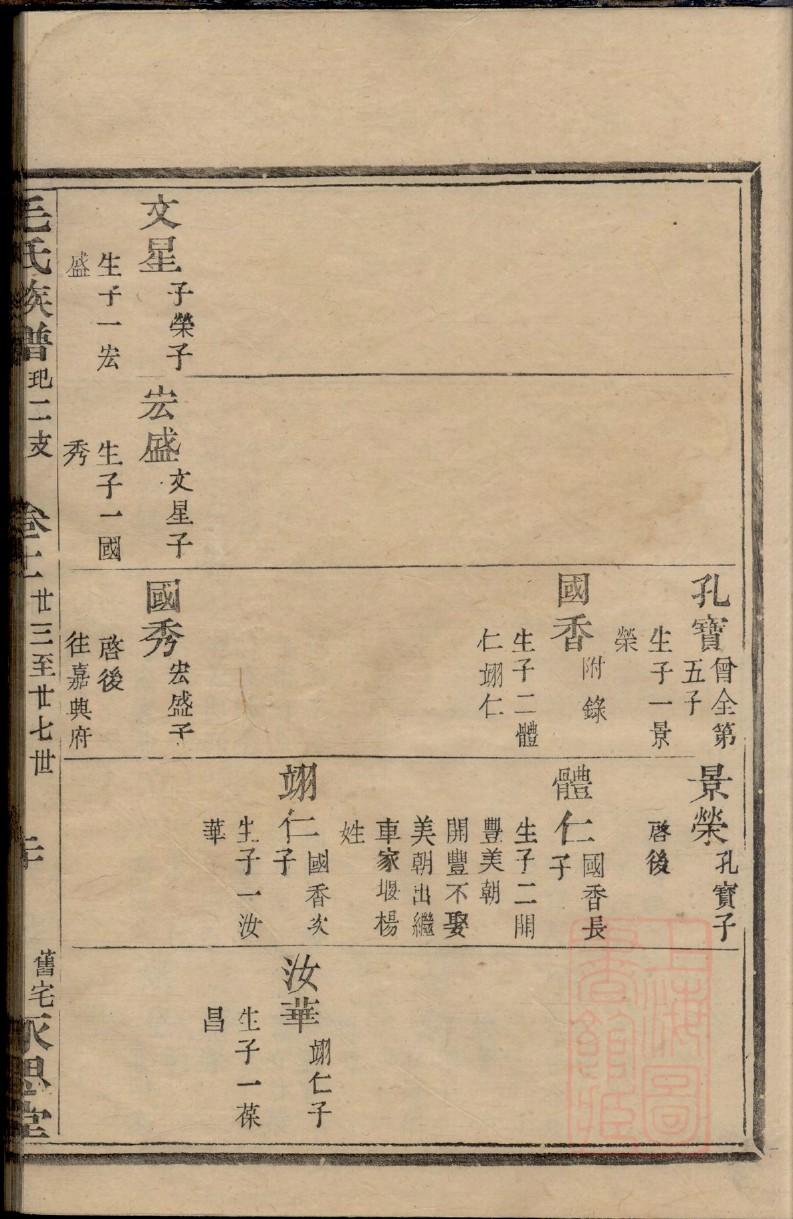 孔寶 曾全第五子
生子一景
榮
國香 附錄
生子二體
仁翊仁
景榮 孔寶子
啓後
體仁 國香長子
生子二開
豐美朝
開豐不娶
美朝出繼
車家堰楊
姓
翊仁 國香次子
生子一汝
華
汝華 翊仁子
生子一葆
昌
文星 子榮子
生子一宏
盛
宏盛 文星子
生子一國
秀
國秀 宏盛子
啓後
往嘉興府
毛氏族譜 玘二支 卷十二 廿三至廿七世 舊宅永思堂
上海圖書館藏